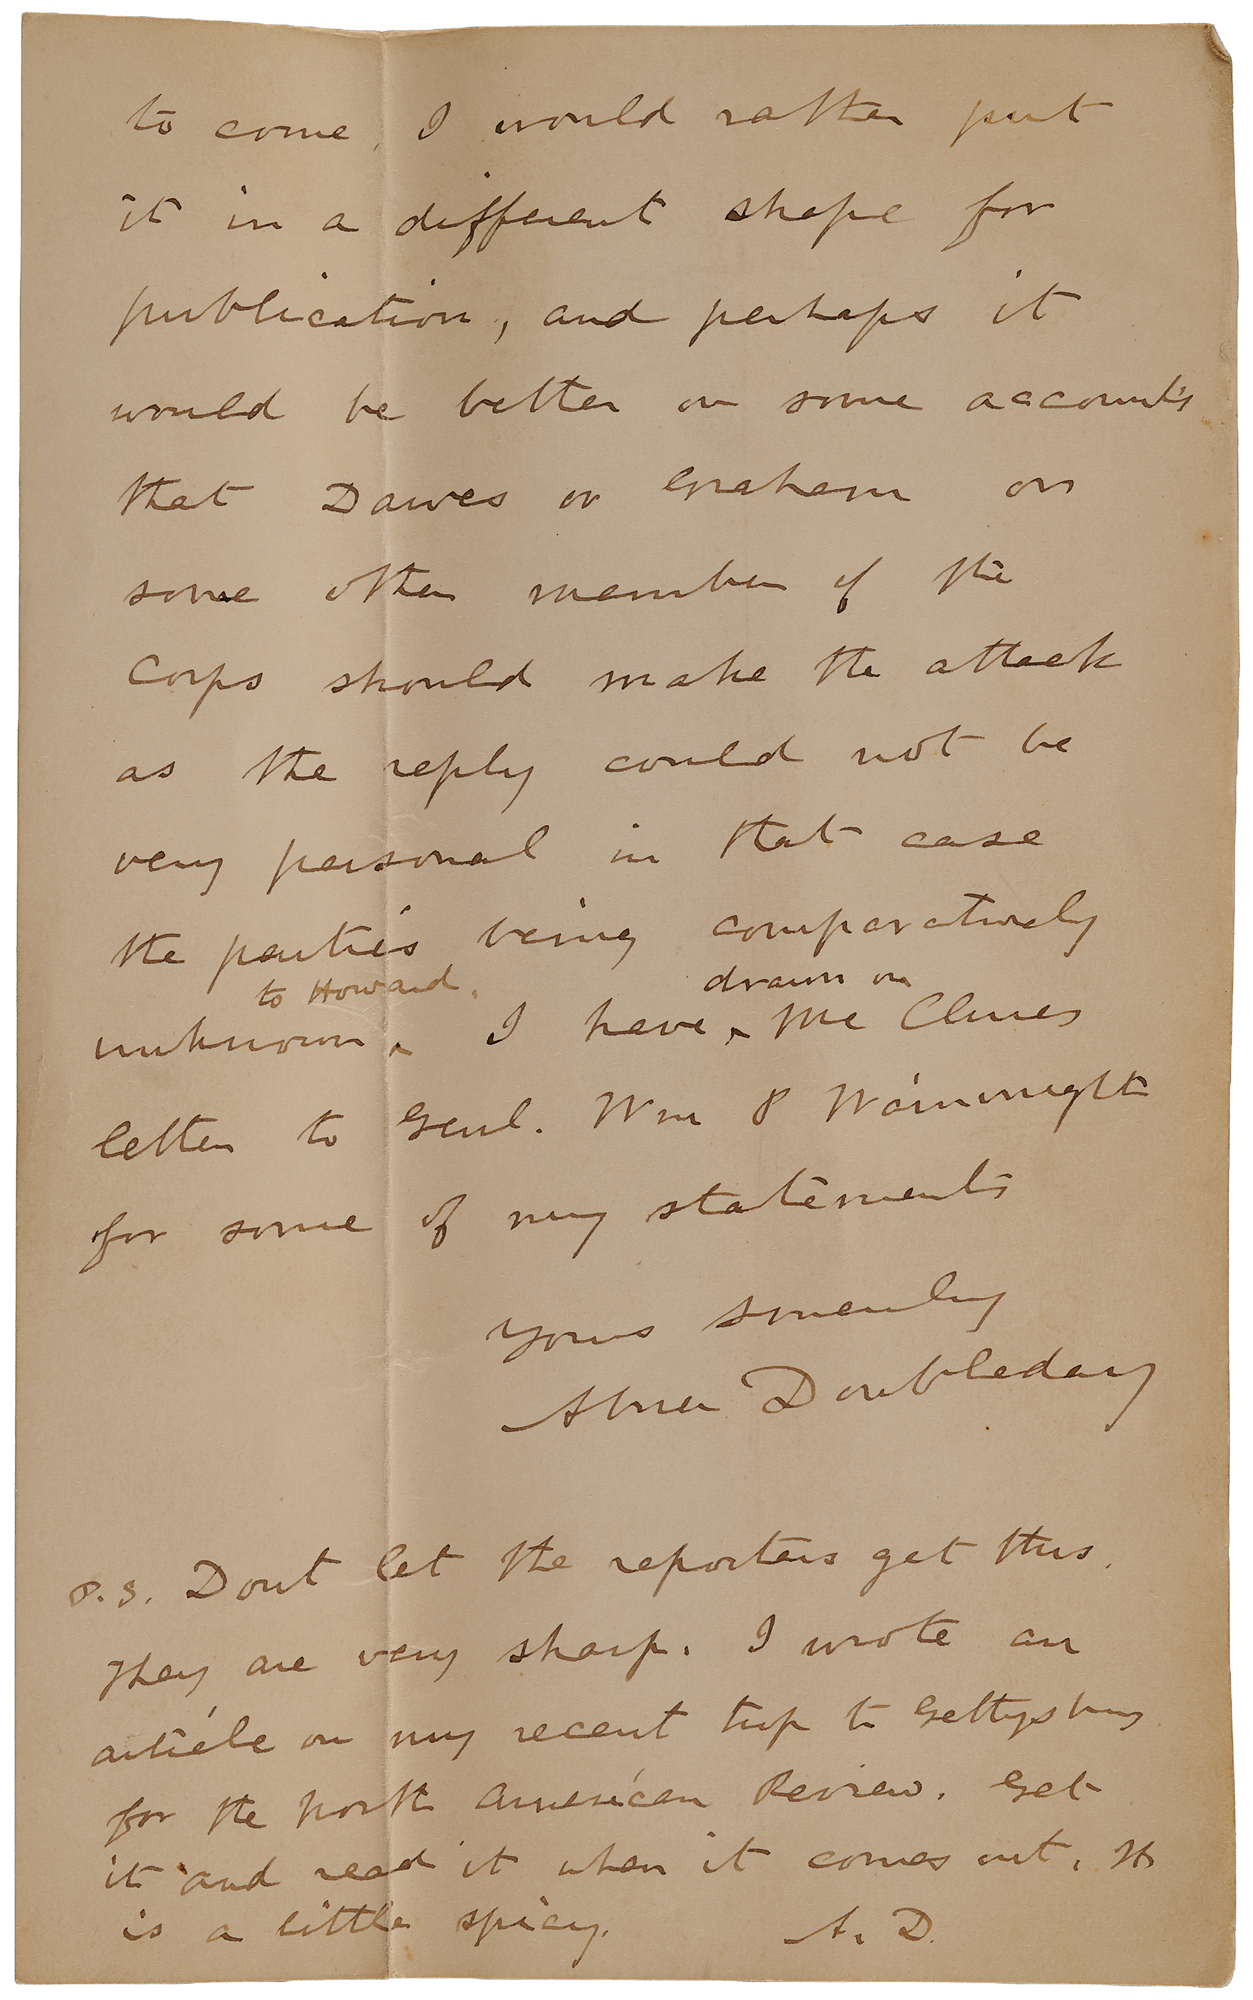 to come, I would rather put
it in a different shape for
publication, and perhaps it
would be better on some accounts
that Dawes or Graham or
some other member of the
Corps should make the attack
as the reply could not be
very personal in that case
the parties being comparatively
to Howard. drawn on
unknown ‸ I have ‸ Mc Clures
letter to Genl. Wm P Wainwright
for some of my statements
Yours sincerely
Abner Doubleday
P.S. Dont let the reporters get this.
They are very sharp. I wrote an
article on my recent trip to Gettysburg
for the North American Review. Get
it and read it when it comes out. It
is a little spicy. A. D.